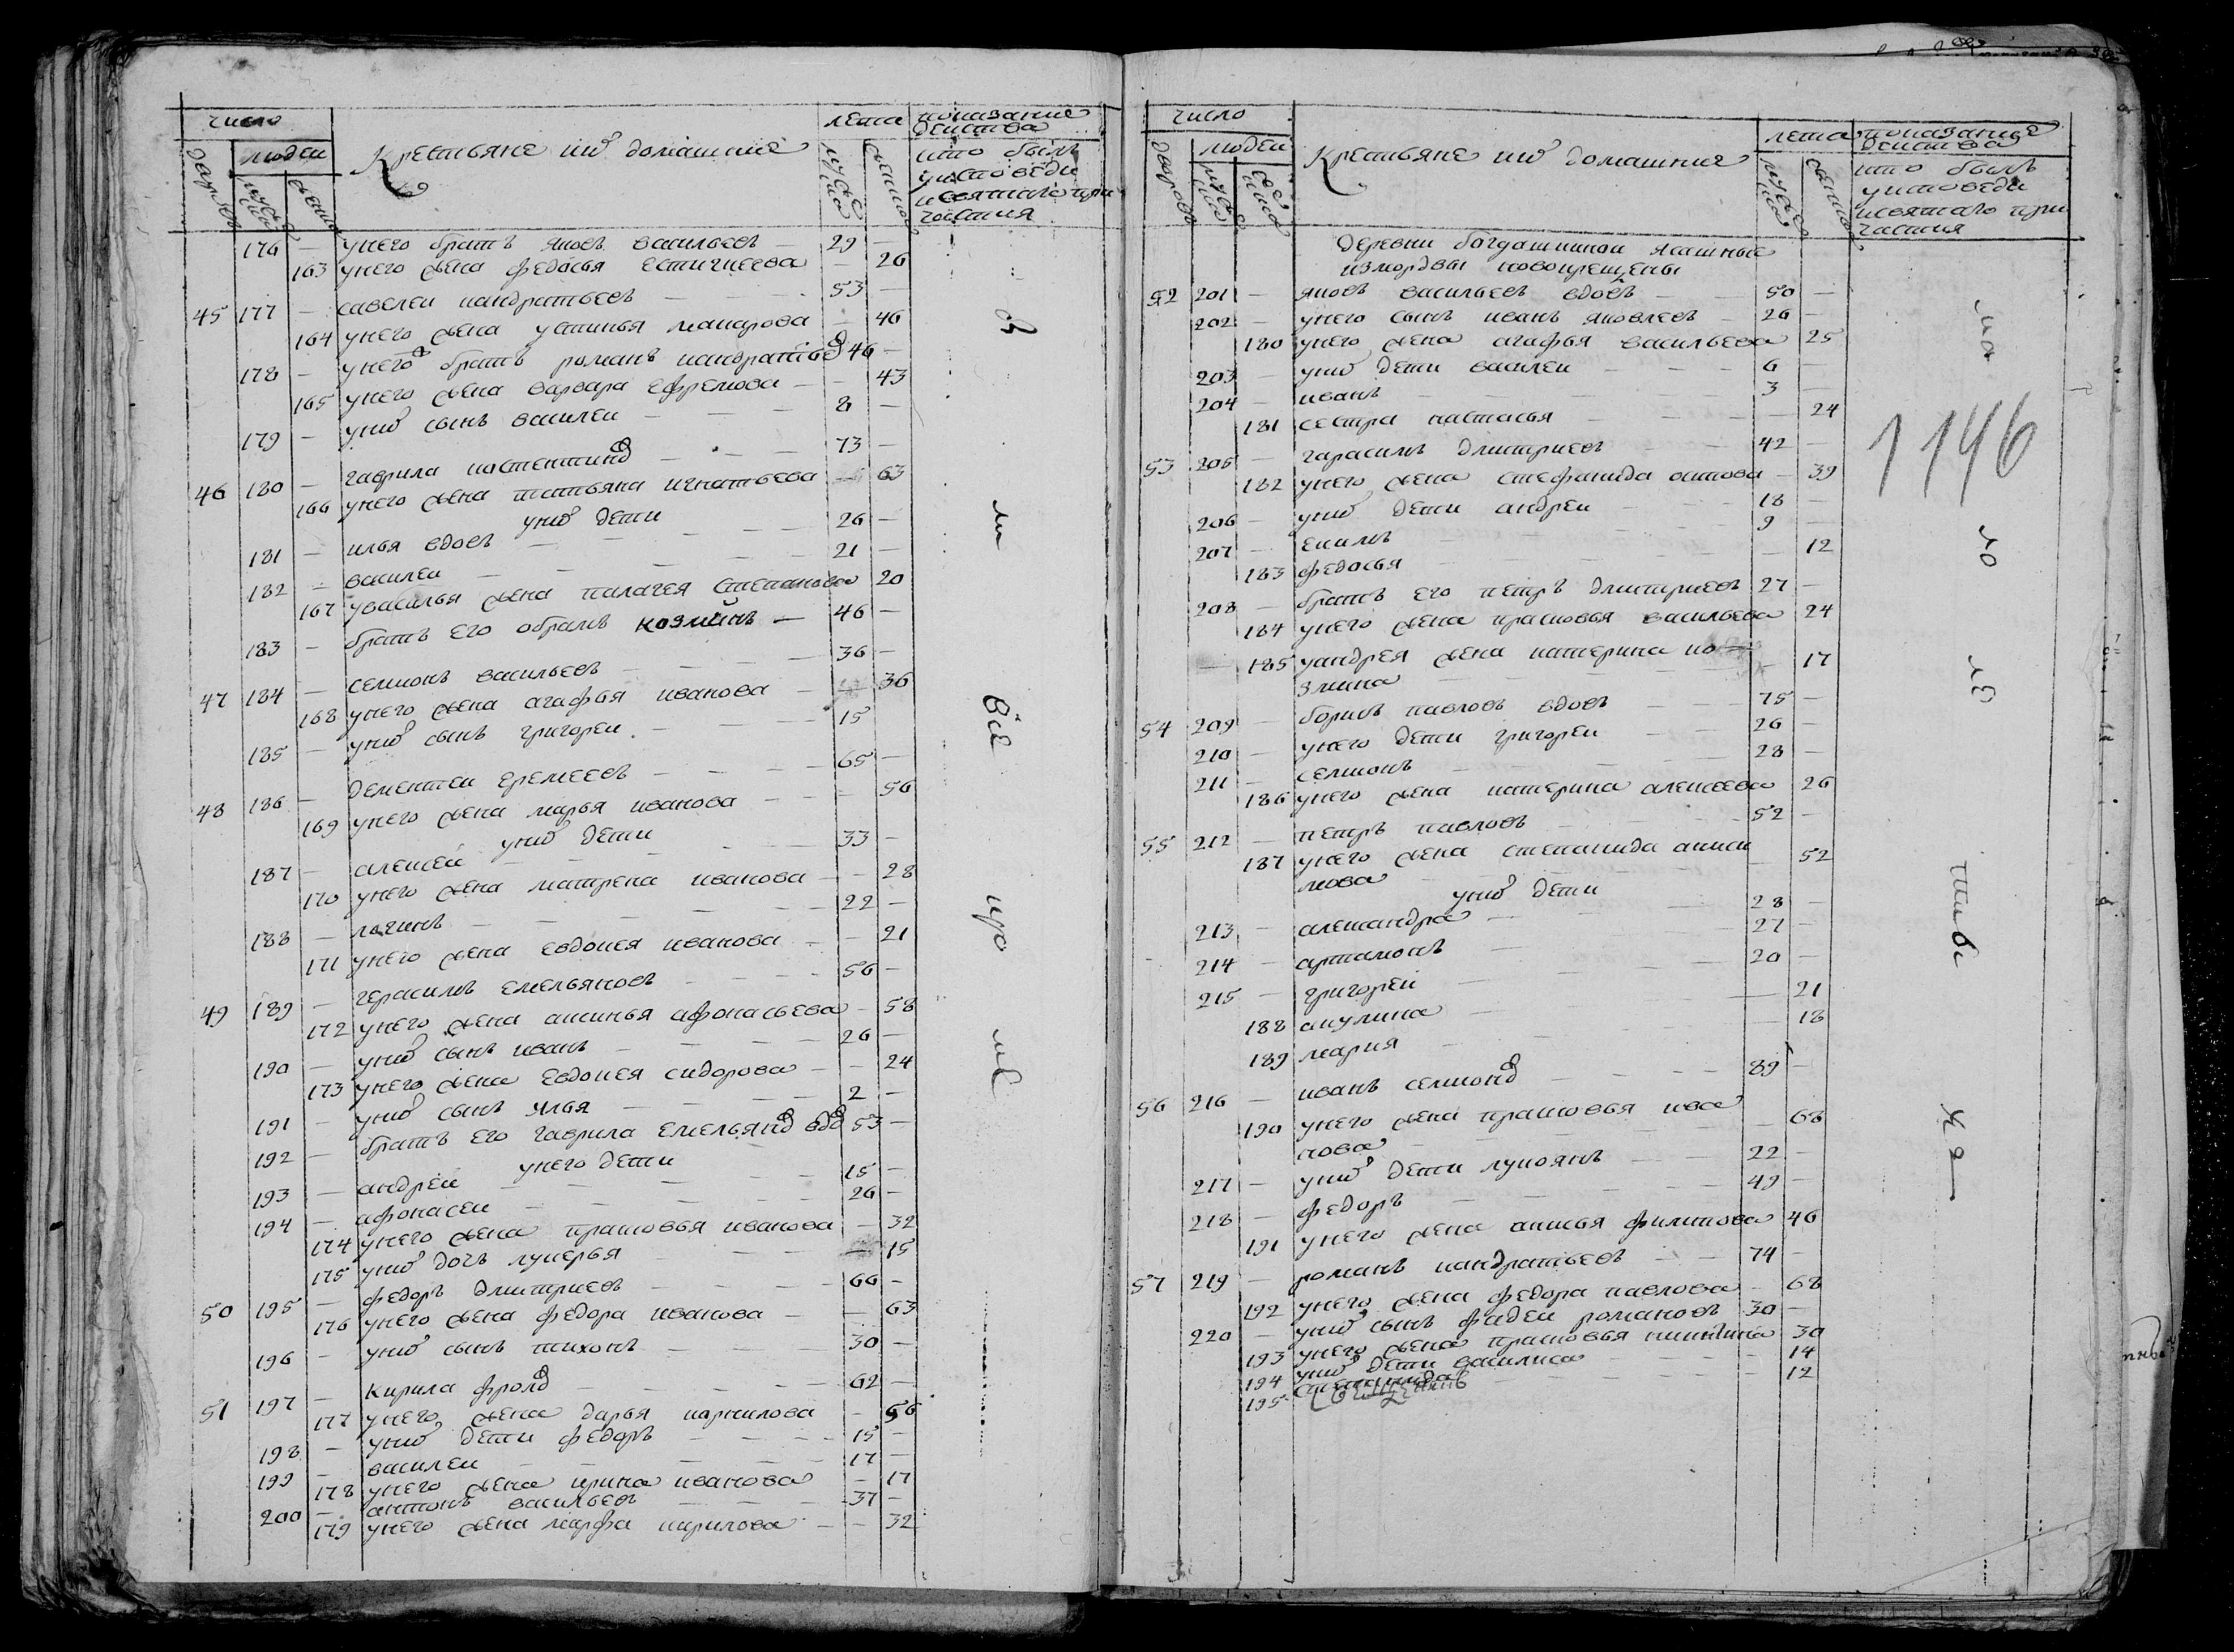 число
людеи
дворовъ
мужеска
женска
Крестьяне ихъ домашние
лета
мужеска
женска
показание
действа
кто былъ
у исповеди
и святаго при
частия
176 — у него братъ яковъ васильевъ — 29 —
163 у него жена федосья естигнеева — 26
45 177 — савелеи кандратьевъ — 53 —
164 у него жена устинья макарова — 46
178 — у него братъ романъ кандратьевъ 46 —
165 у него жена варвара ефремова — 43
179 — у них сынъ василеи — 8 —
46 180 — гаврила костентинов — 73 —
166 у него жена татьяна игнатьева — 63
у них дети
181 — илья вдовъ — 26 —
182 — василеи — 21 —
167 у василья жена палагея степанова 20
183 — братъ его обрамъ козминъ — 46 —
47 184 — семионъ васильевъ — 36 —
168 у него жена агафья иванова — 36
185 — у них сынъ григореи — 15
48 186 — дементеи еремеевъ — 65 —
169 у него жена марья иванова — 56
у них дети
187 — алексеи — 33 —
170 у него жена матрена иванова — 28
188 — логинъ — 22 —
171 у него жена евдокея иванова — 21
49 189 — герасимъ емельяновъ — 56 —
172 у него жена аксинья афонасьева — 58
190 — у них сынъ иванъ — 26 —
173 у него жена евдокея сидорова — 24
191 — у них сынъ илья — 2 —
192 — братъ его гаврила емельянов вдов 53 —
у него дети
193 — андреи — 15 —
194 — афонасеи — 26 —
174 у него жена прасковья иванова — 32
175 у них дочь лукерья — 15
50 195 — федоръ дмитриевъ — 66 —
176 у него жена федора иванова — 63
196 — у них сынъ тихонъ — 30 —
51 197 — кирила фролов — 62 —
177 у него жена дарья карнилова — 56
198 — у них дети федоръ — 15 —
199 — василеи — 17 —
178 у него жена ирина иванова — 17
200 — антонъ васильевъ — 37 —
179 у него жена марфа кирилова — 32
число
людеи
дворовъ
мужеска
женска
Крестьяне ихъ домашние
лета
мужеска
женска
показание
действа
кто былъ
у исповеди
и святаго при
частия
деревни богдашкинои ясашные
из мордвы новокрещены
52 201 — яковъ васильевъ вдовъ — 50 —
202 — у него сынъ иванъ яковлевъ — 26 —
180 у него жена агафья васильева 25
203 — у них дети василеи — 6 —
204 — иванъ — 3 —
181 сестра настасья — 24
53 205 — гарасимъ дмитриевъ — 42 —
182 у него жена стефанида осипова — 39
206 — у них дети андреи — 18 —
207 — екимъ — 9 —
183 федосья — 12
208 — братъ его петръ дмитриевъ 27 —
184 у него жена прасковья васильева 24
185 у андрея жена катерина ко
змина — 17
54 209 — борисъ павловъ вдовъ — 75 —
210 — у него дети григореи — 26 —
211 — семионъ — 28 —
186 у него жена катерина алексеева 26
55 212 — петръ павловъ — 52 —
187 у него жена степанида аниси
мова — 52
у них дети
213 — александра — 28 —
214 — артамонъ — 27 —
215 — григореи — 20 —
188 акулина — 21
189 мария — 18
56 216 — иванъ семионов — 89 —
190 у него жена прасковья ива
нова — 68
217 — у них дети лукоянъ — 22 —
218 — федоръ — 49 —
191 у него жена анисья филипова 46
57 219 — романъ кандратьевъ — 74 —
192 у него жена федора павлова — 68
220 — у них сынъ фадеи романовъ 30 —
193 у него жена прасковья никитина 30
194 у них дети василиса — 14
195 степанида — 12
1146